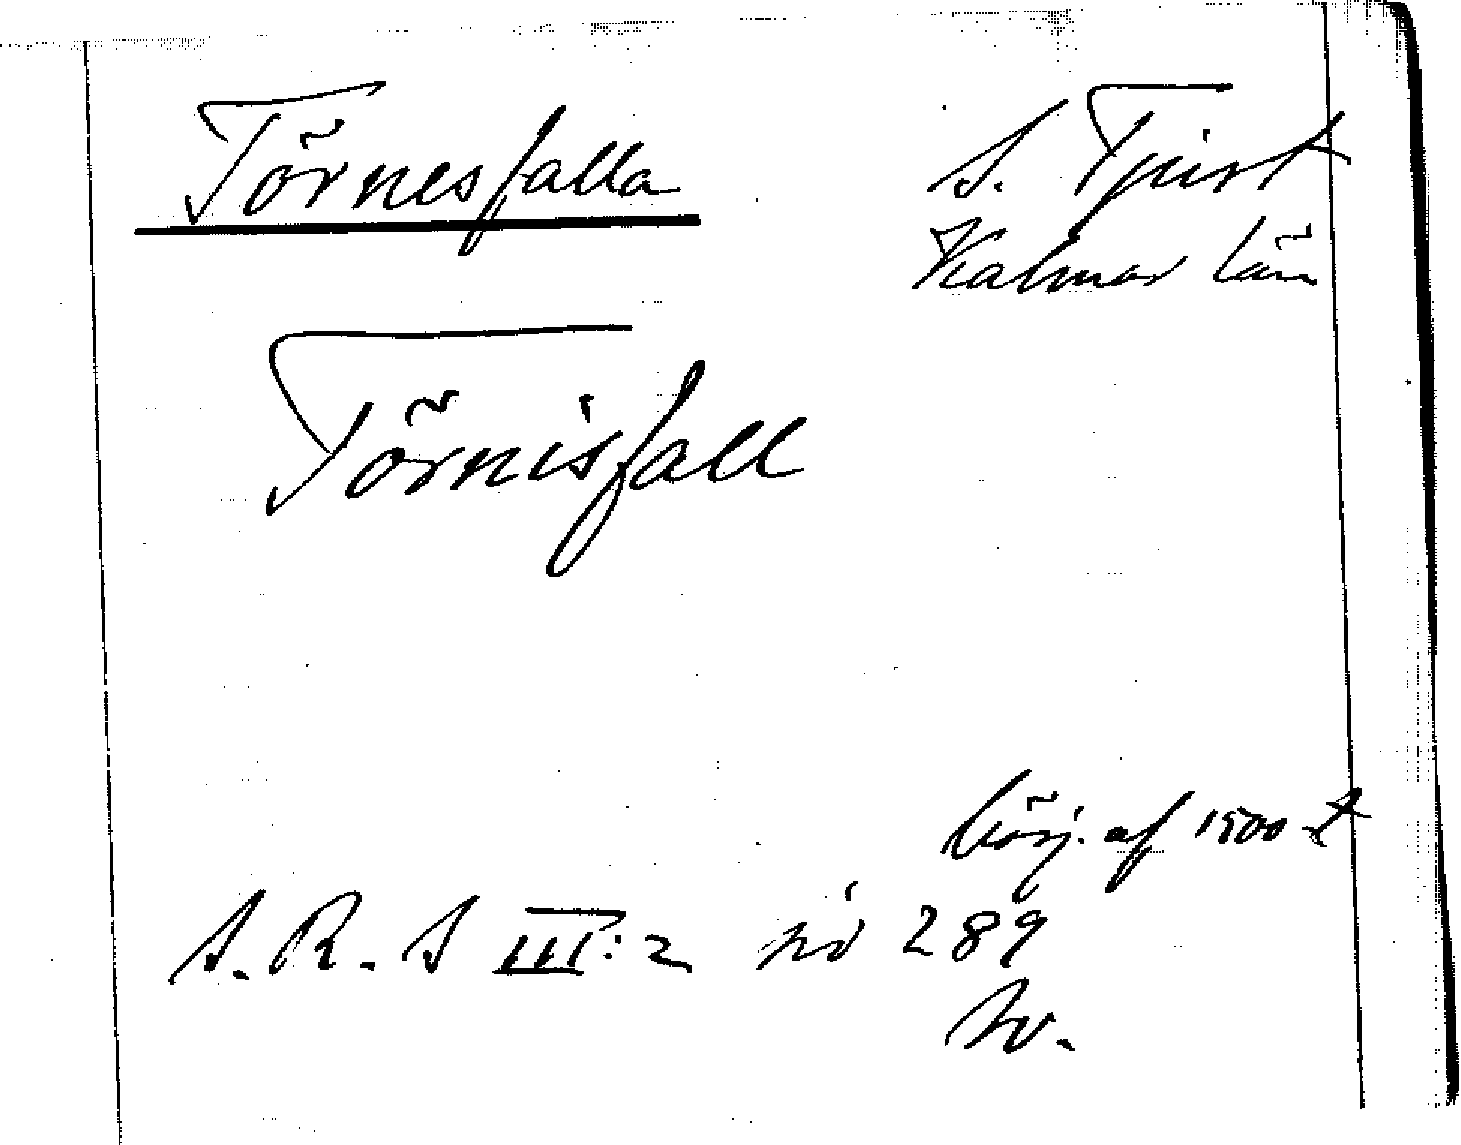 Törnesfalla S. Tjust
Kalmar län
Törnisfall
börj. af 1500 t
S.R.S III:2 no 289